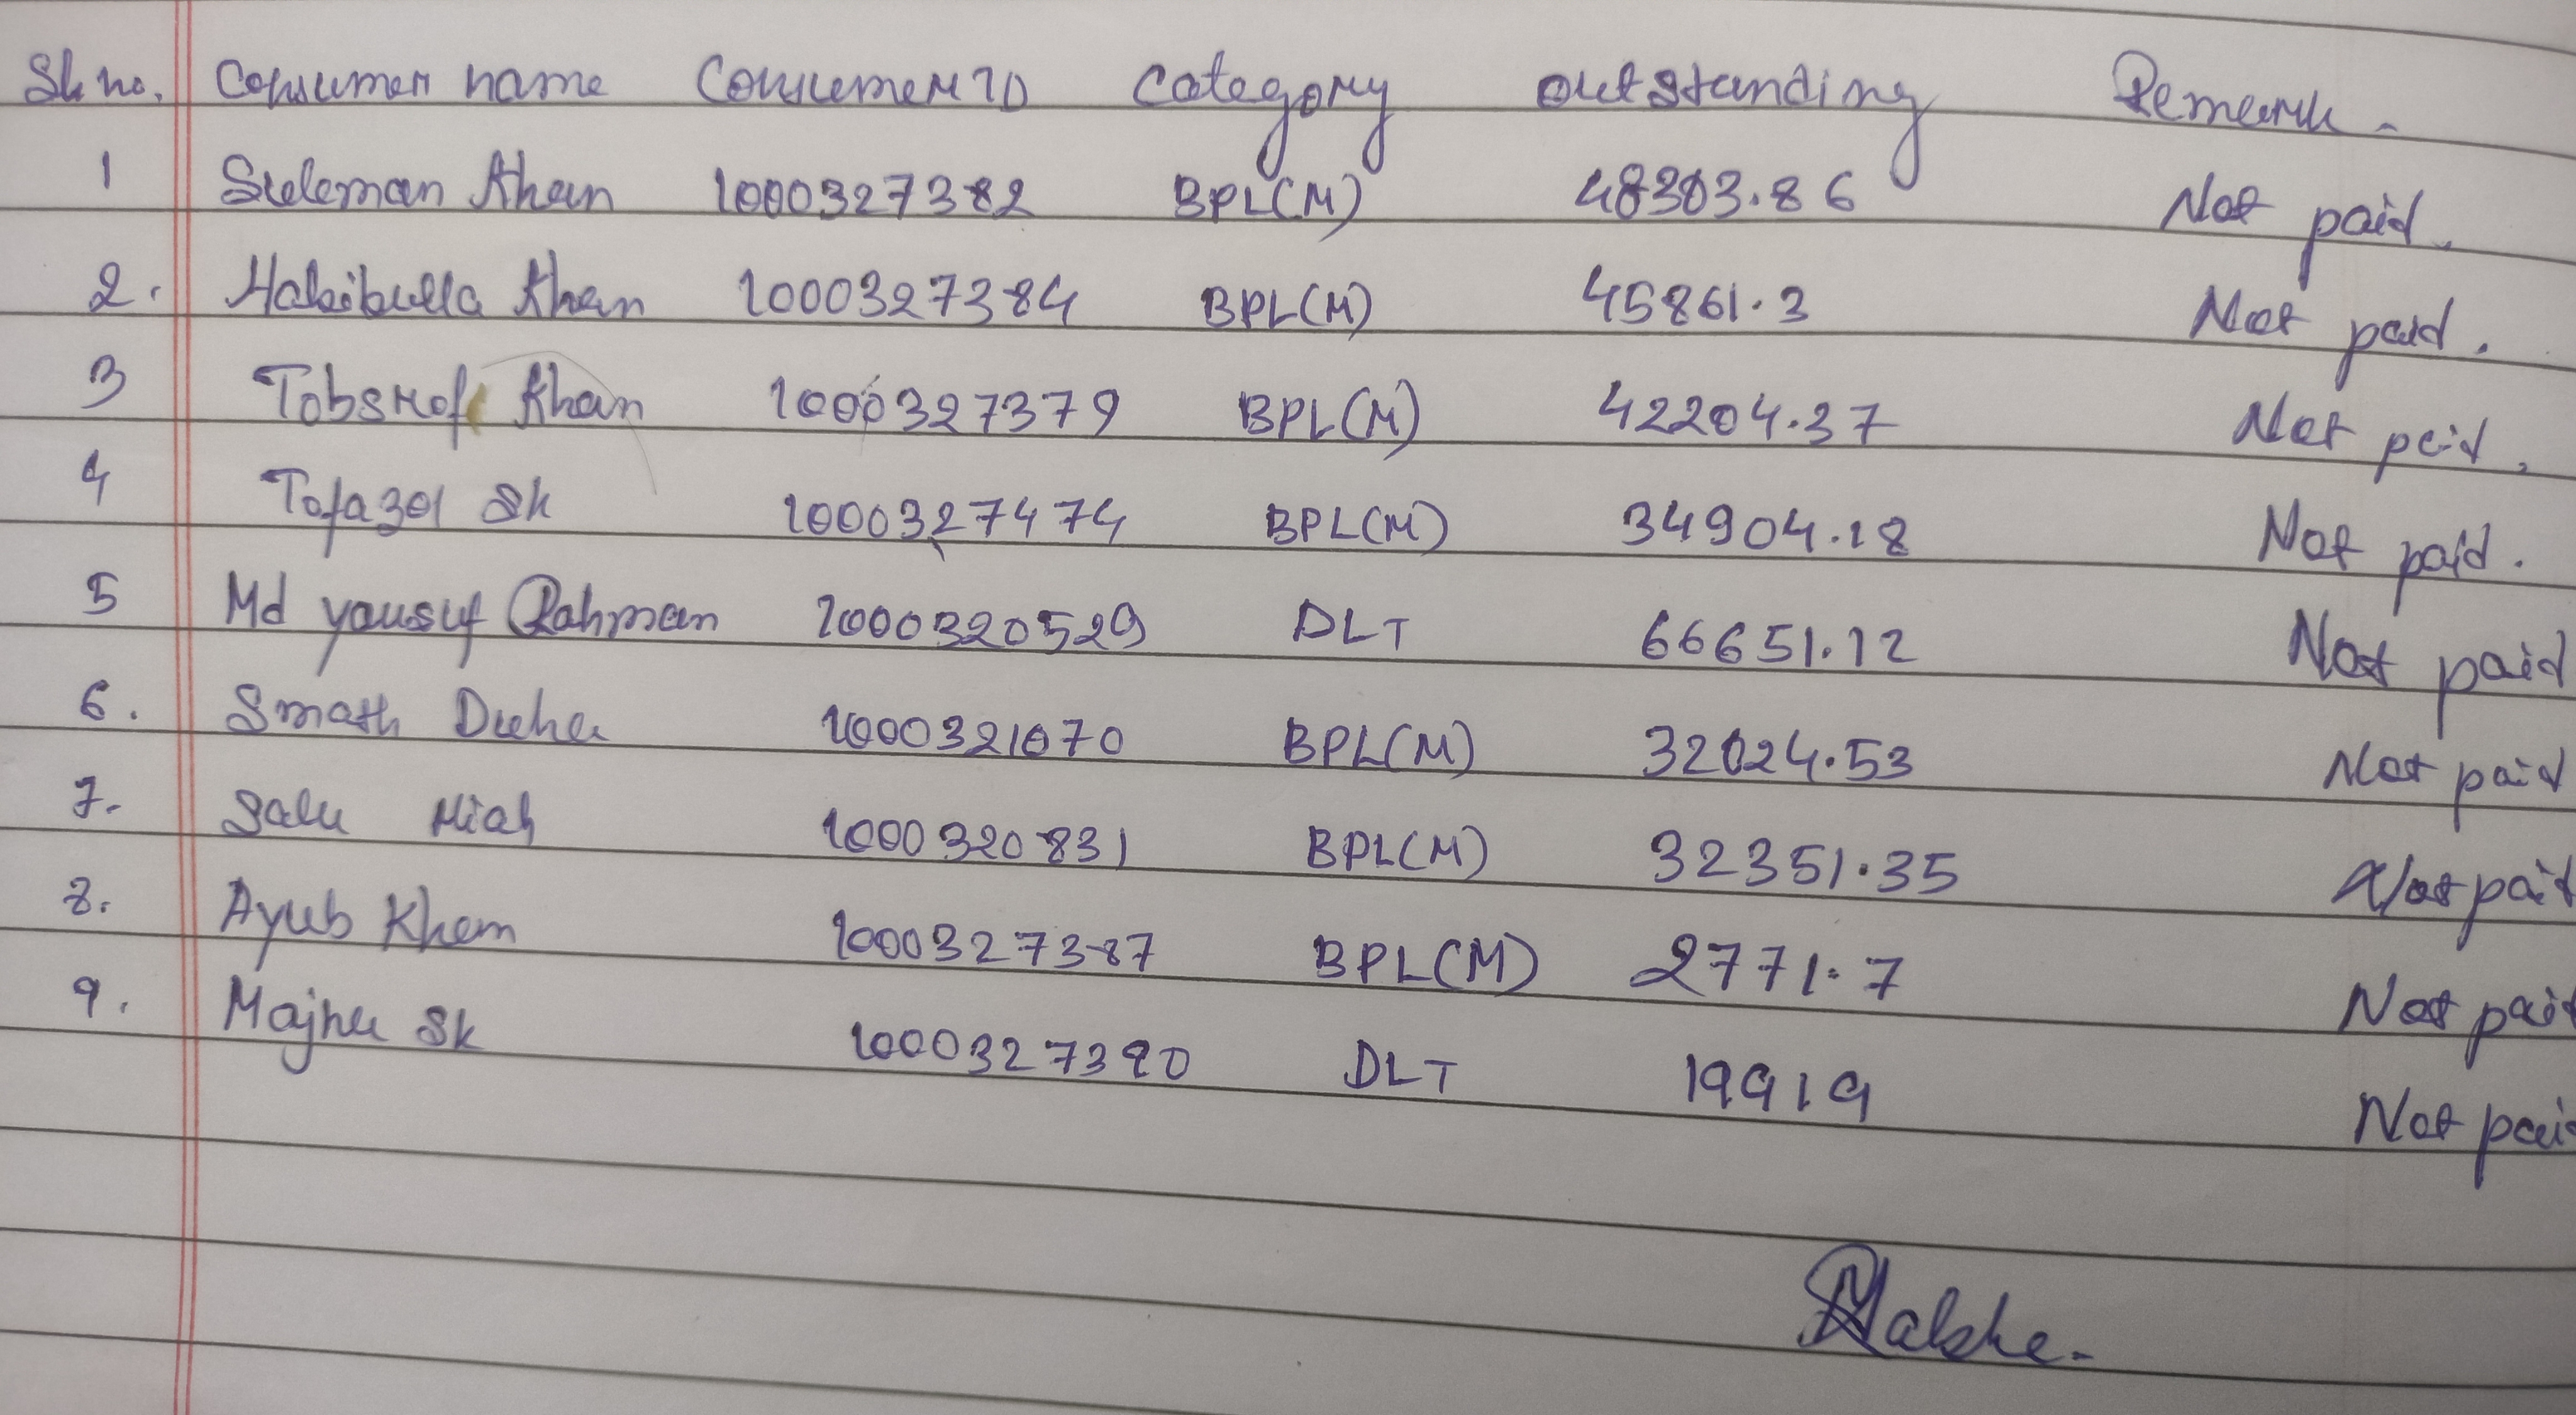 Sl. no. Consumer name Consumer ID Category Outstanding Remark.
1 Suleman Khan 1000327382 BPL(M) 48303.86 Not paid.
2. Habibulla Khan 1000327384 BPL(M) 45861.3 Not paid.
3 Tobsrof Khan 1000327379 BPL(M) 42204.37 Not paid.
4 Tofazol Sk 1000327474 BPL(M) 34904.18 Not paid.
5 Md yousuf Rahman 1000320529 DLT 66651.12 Not paid
6. Smath 1000321070 BPL(M) 32024.53 Not paid
7. Salu Miah 1000320831 BPL(M) 32351.35 Not paid
8. Ayub Khan 1000327387 BPL(M) 2771.7 Not paid
9. Majnu Sk 1000327390 DLT 19919 Not pai